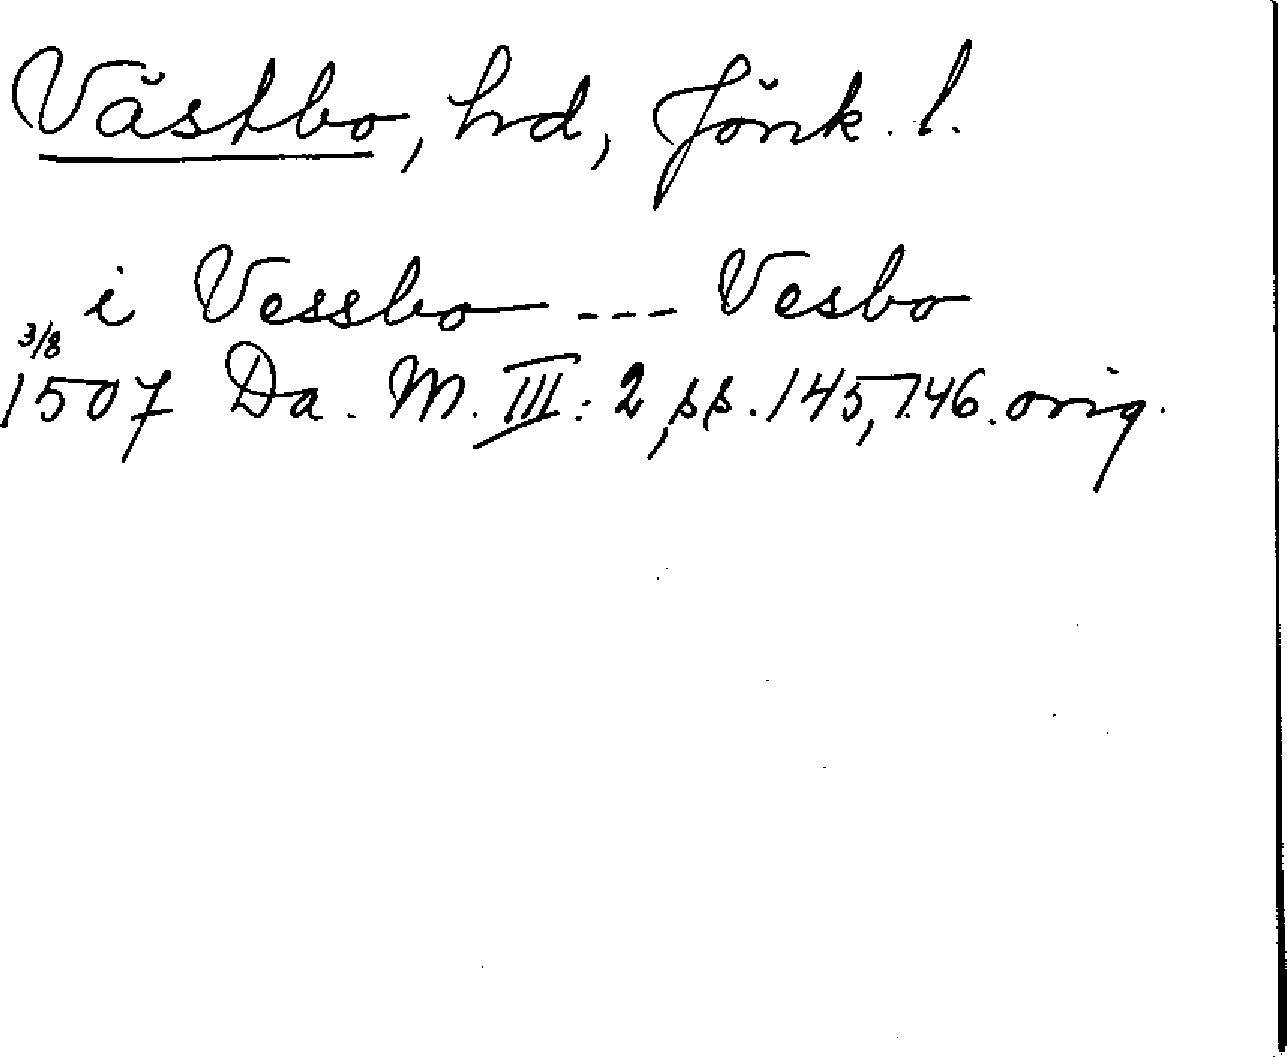 Västbo, hd, Jönk. l.
i Vessbo --- Vesbo
3/8
1507 Da. M. III: 2, ss. 145, 146. orig.